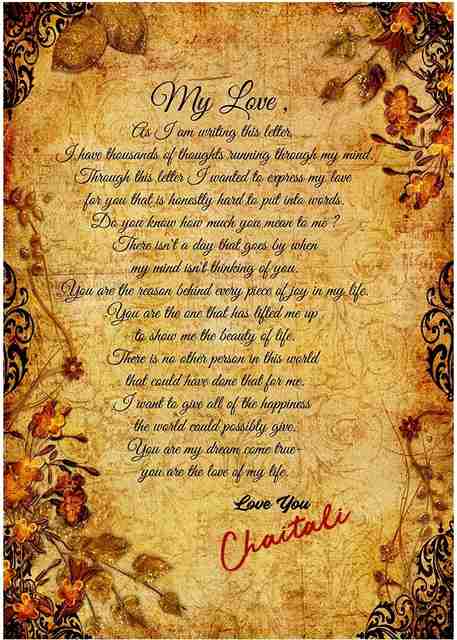 My Love ,
As I am writing this letter,
I have thousands of thoughts running through my mind.
Through this letter I wanted to express my love
for you that is honestly hard to put into words.
Do you know how much you mean to me ?
There isn't a day that goes by when
my mind isn't thinking of you.
You are the reason behind every piece of joy in my life.
You are the one that has lifted me up
to show me the beauty of life.
There is no other person in this world
that could have done that for me.
I want to give all of the happiness
the world could possibly give.
You are my dream come true-
you are the love of my life.
Love You
Chaitali